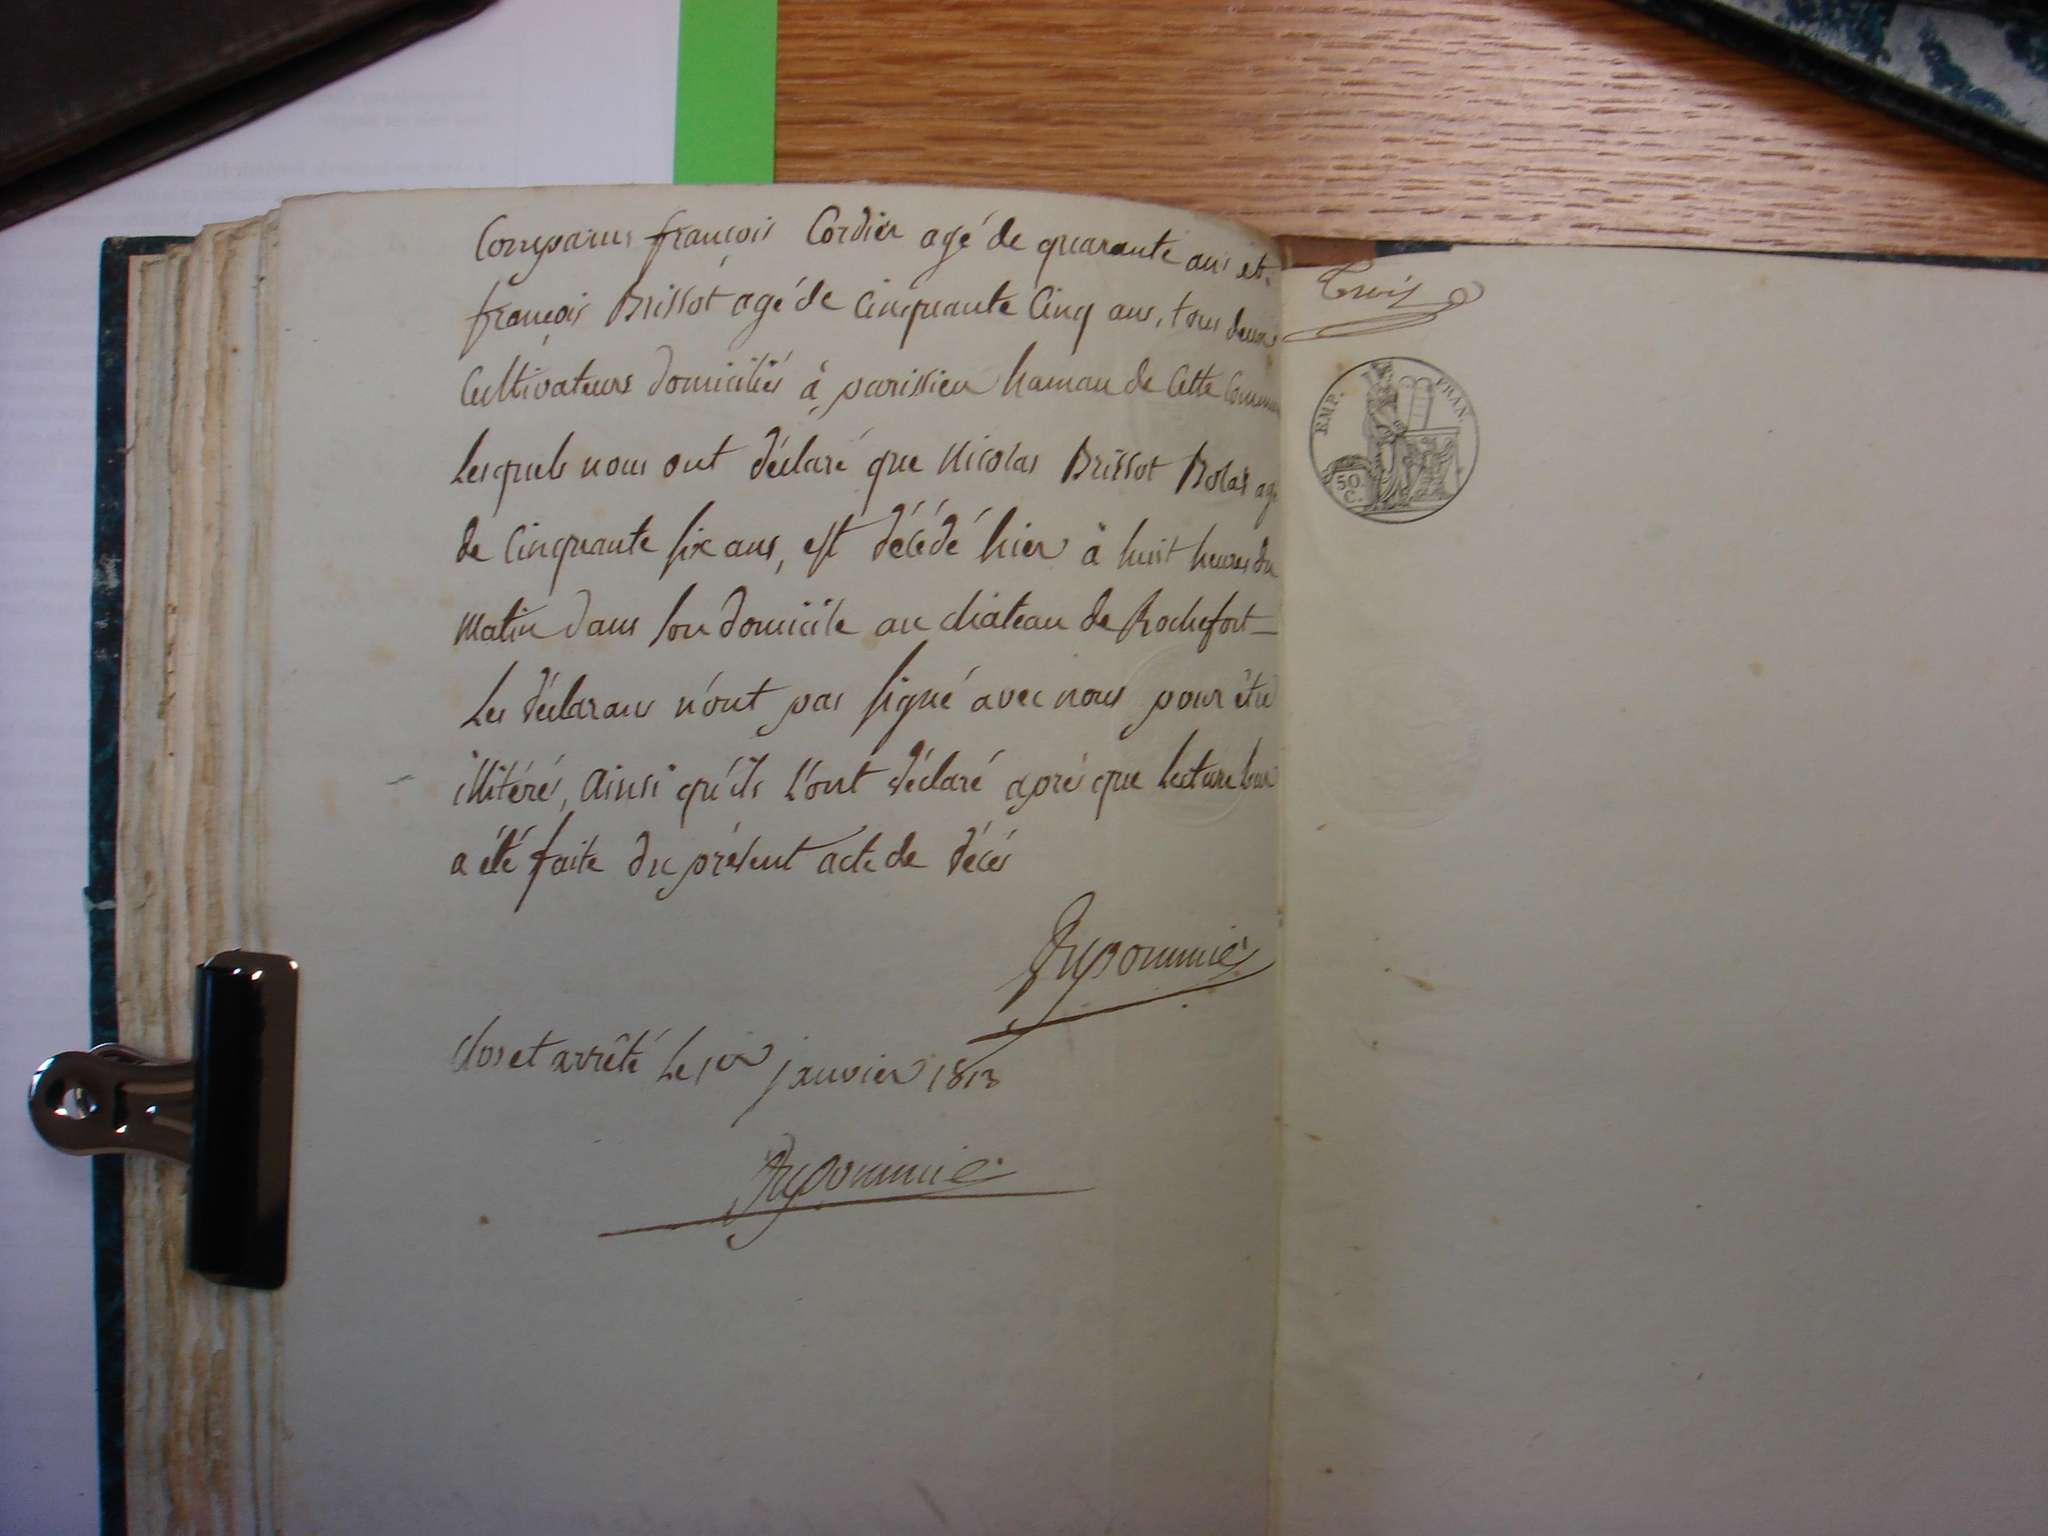 Comparus françois Cordier agé de quarante ans et
françois Brissot agé de cinquante cinq ans, tous deux
Cultivateurs domiciliés à parissien hamau de cette Commune
Lesquels nous ont déclaré que Nicolas Brissot Bolas agé
de cinquante six ans, est décédé hier à huit heures du
matin dans son domicile au château de Rochefort
Les déclarans n'ont pas signé avec nous pour être
illitérés, ainsi qu'ils l'ont déclaré aprés que lecture leur
a été faite du présent acte de décés
Clos et arrêté Le 1er janvier 1813
Trois
EMP. FRAN.
50
C.